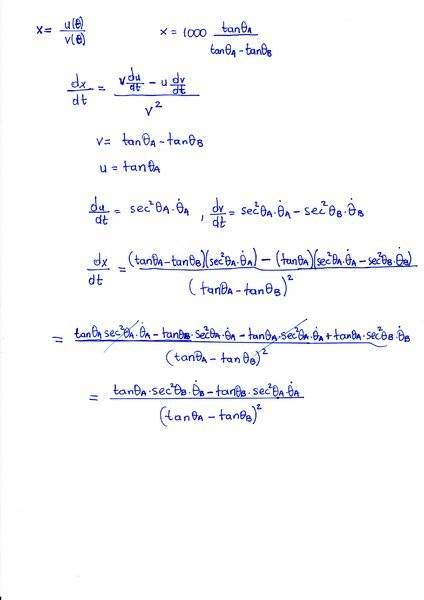 x = u(t)/v(t)    x = 1000 tanθA/(tanθA - tanθB)
dx/dt = (v du/dt - u dv/dt)/v²
v = tanθA - tanθB
u = tanθA
du/dt = sec²θA·θ̇A , dv/dt = sec²θA·θ̇A - sec²θB·θ̇B
dx/dt = ((tanθA - tanθB)(sec²θA·θ̇A) - (tanθA)(sec²θA·θ̇A - sec²θB·θ̇B))/(tanθA - tanθB)²
= (tanθA sec²θA·θ̇A - tanθB·sec²θA·θ̇A - tanθA·sec²θA·θ̇A + tanθA·sec²θB·θ̇B)/(tanθA - tanθB)²
= (tanθA·sec²θB·θ̇B - tanθB·sec²θA·θ̇A)/(tanθA - tanθB)²